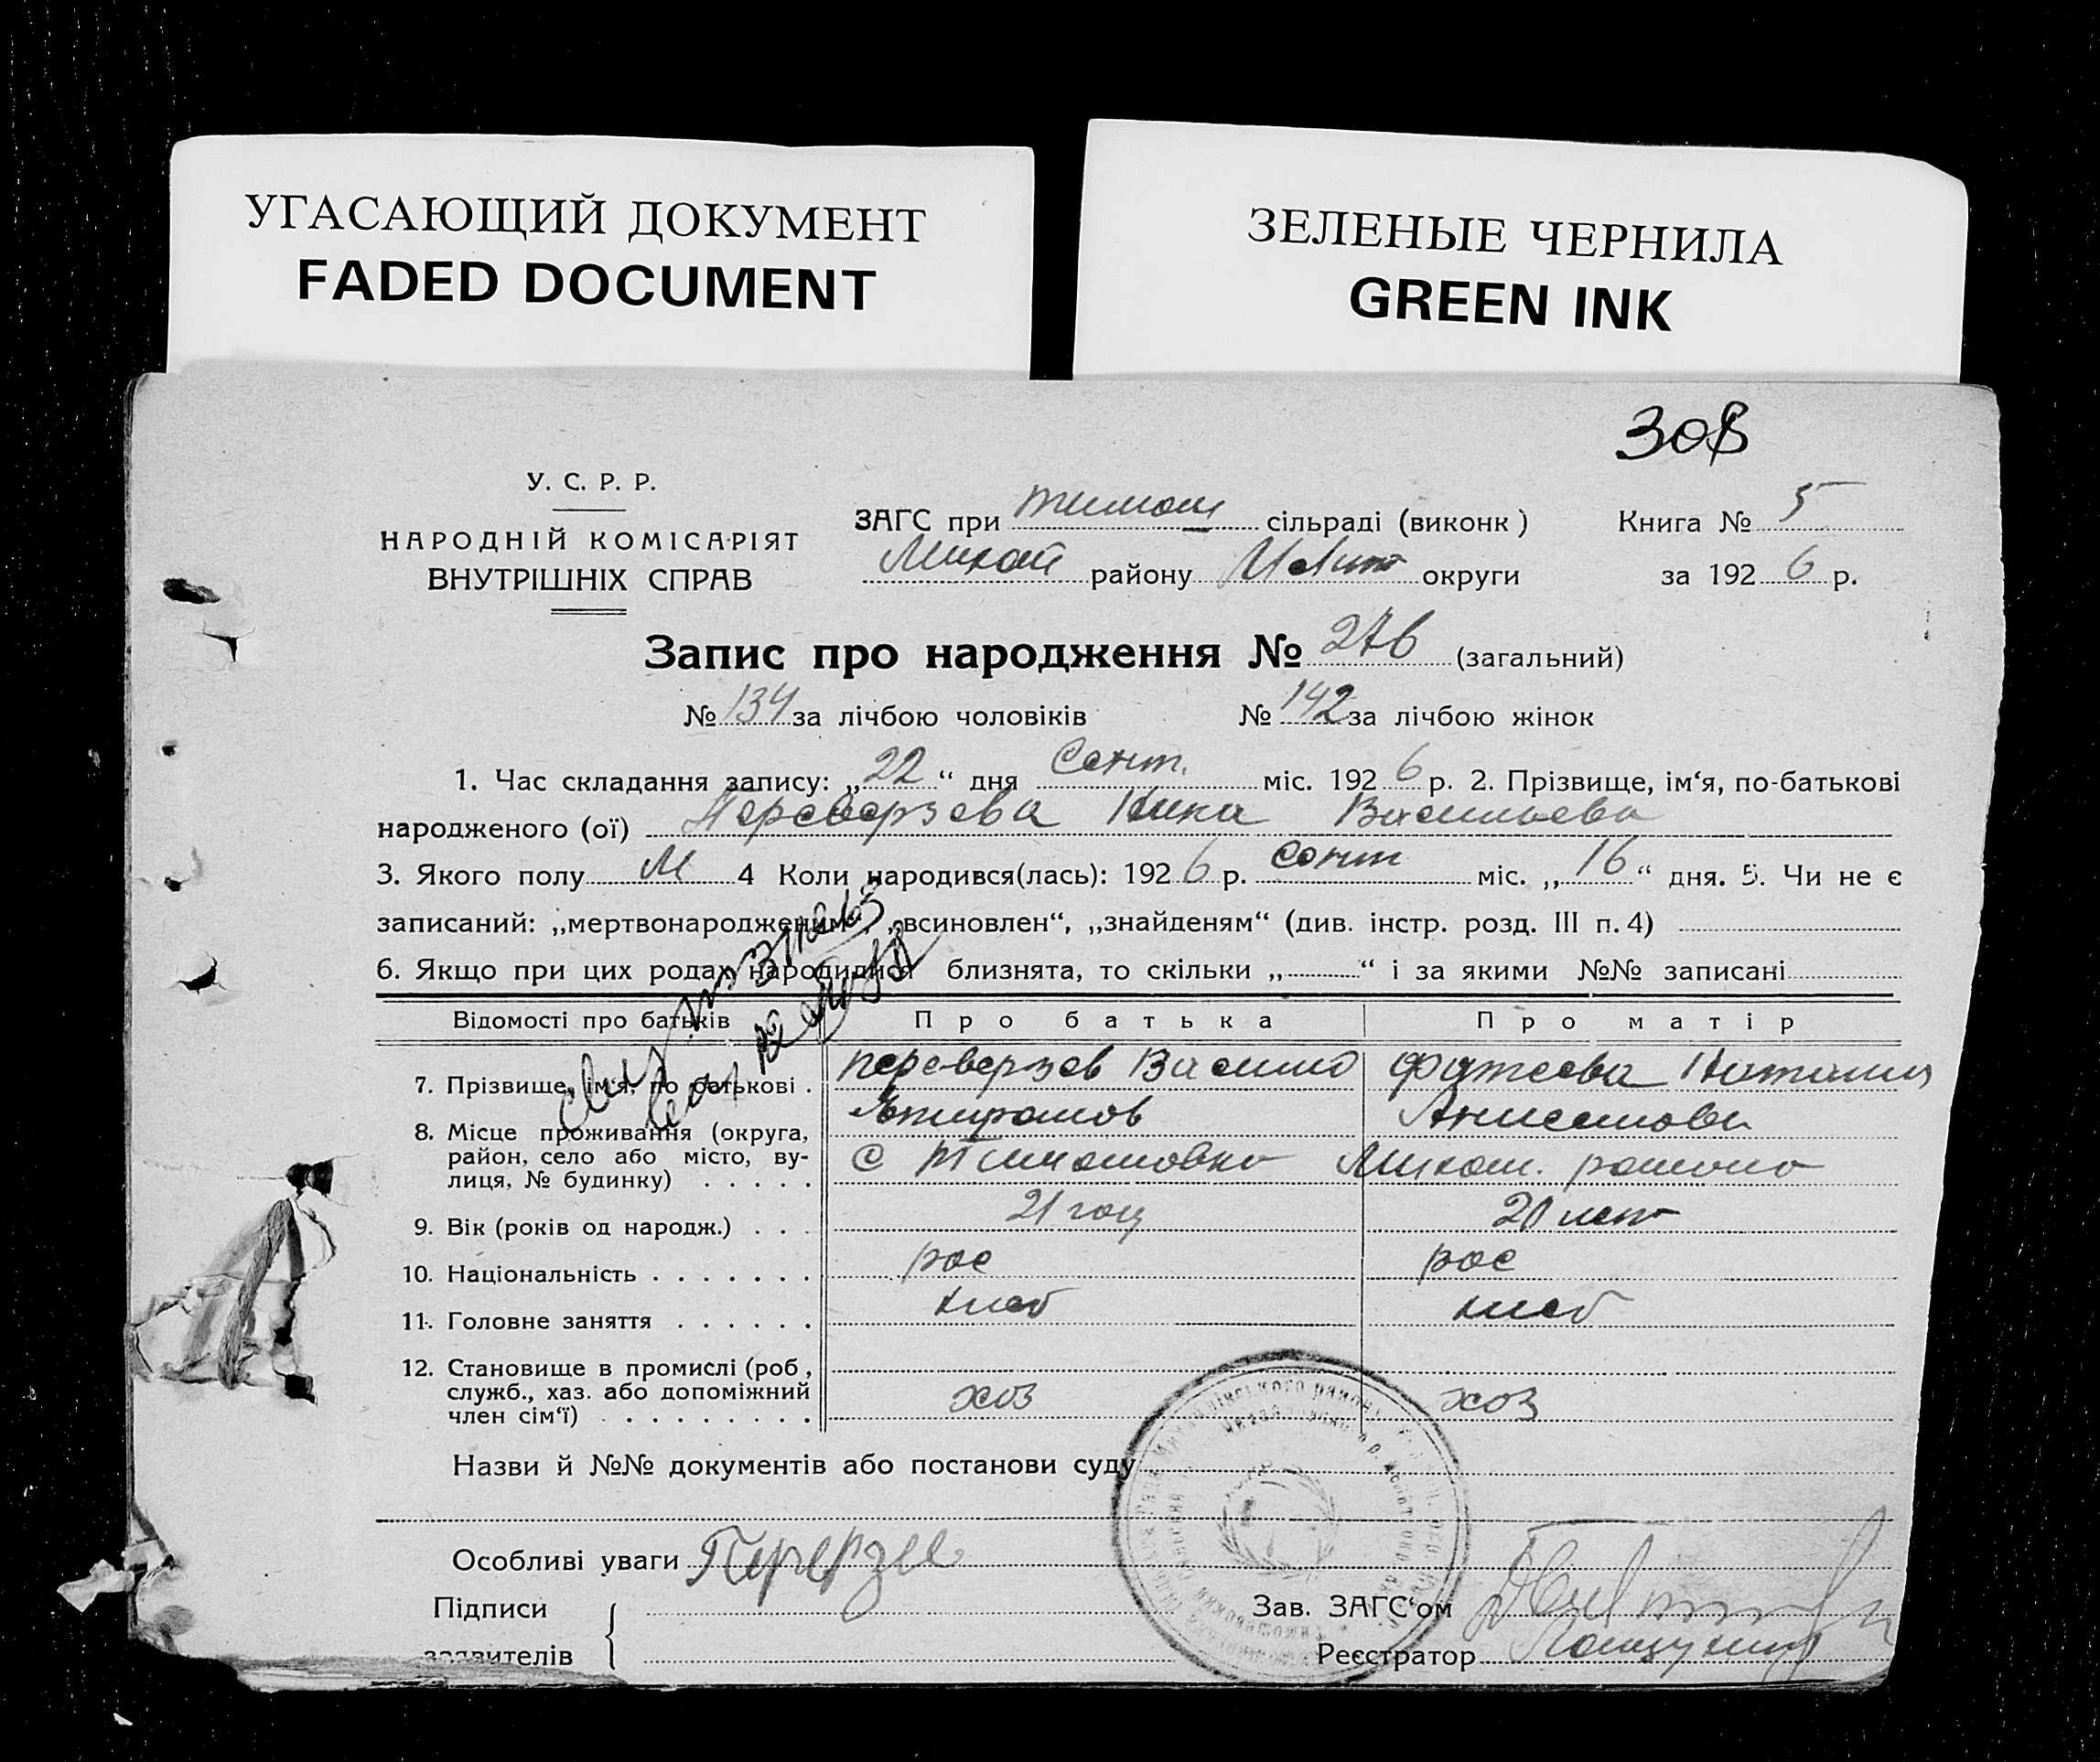 УГАСАЮЩИЙ ДОКУМЕНТ
FADED DOCUMENT
ЗЕЛЕНЫЕ ЧЕРНИЛА
GREEN INK
308
У. С. Р. Р.
НАРОДНІЙ КОМІСАРІЯТ
ВНУТРІШНІХ СПРАВ
ЗАГС при тимош сільраді (виконк) Книга № 5
Михай району Мелит округи за 1926 р.
Запис про народження № 276 (загальний)
№ 134 за лічбою чоловіків № 142 за лічбою жінок
1. Час складання запису: „22“ дня Сент. міс. 1926 р. 2. Прізвище, ім‘я, по-батькові
народженого (ої) Переверзева Нина Васильева
3. Якого полу 4 Коли народився(лась): 1926 р. сент міс. „16“ дня. 5. Чи не є
записаний: „мертвонародженим“, „всиновлен“, „знайденям“ (див. інстр. розд. III п. 4)
6. Якщо при цих родах народилися близнята, то скільки „ “ і за якими №№ записані
Відомості про батьків Про батька Про матір
7. Прізвище, ім‘я, по батькові . Переверзев Василий Фатеева Наталия
8. Місце проживання (округа, Анисимовн
район, село або місто, ву- С Тимошовка Михай. района
лиця, № будинку) . . . . .
9. Вік (років од народж.) . . . 21 год 20 лет
10. Національність . . . . . . . рос рос
11. Головне заняття . . . . . . хлеб хлеб
12. Становище в промислі (роб,
служб., хаз. або допоміжний хоз хоз
член сім‘ї) . . . . . . . . .
Назви й №№ документів або постанови суду
Особливі уваги
Підписи Зав. ЗАГС‘ом
заявителів Реєстратор